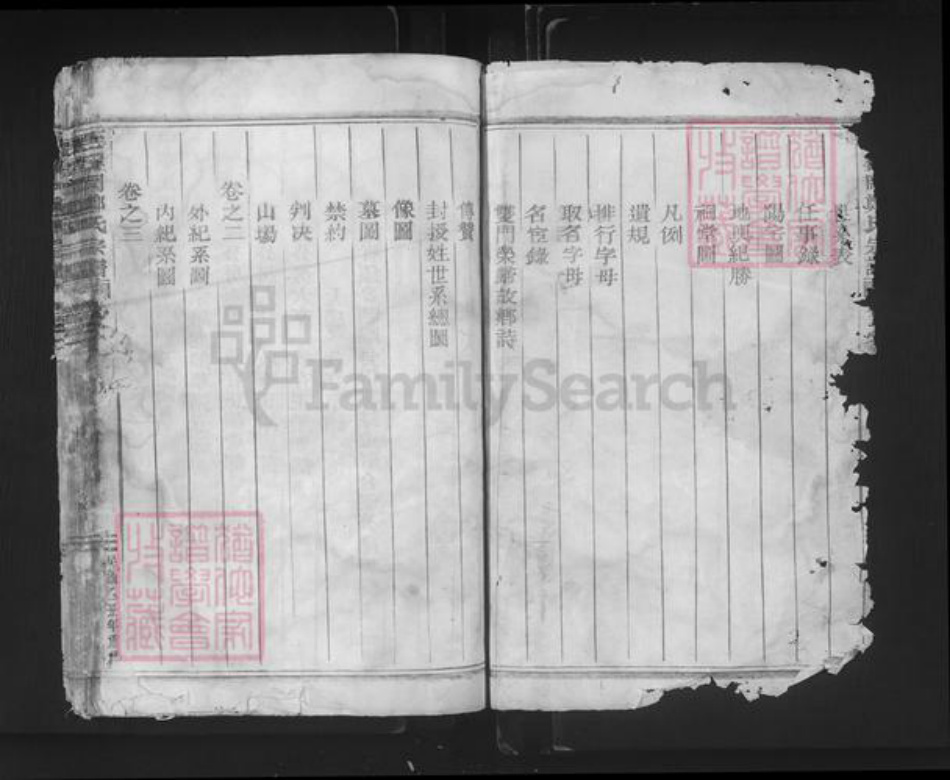 任事錄
陽宅圖
地輿紀勝
祠堂圖
凡例
遺規
排行字母
取名字母
名宦錄
雙門榮第故鄉詩
傳贊
封授姓世系總圖
像圖
墓圖
禁約
判决
山場
卷之二
外紀系圖
內紀系圖
卷之三
FamilySearch